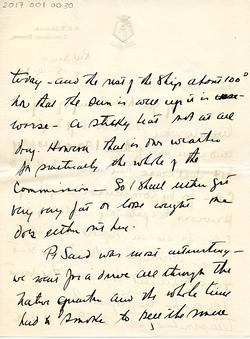 2017 001 0030
today - and the rest of the Ship about 100°
now that the Sun is well up it is
worse - a sticky heat not at all
dry. However that is our weather
for practically the whole of the
Commission - So I shall either get
very very fat or lose weight one
does either out here.
Pt Said was most interesting -
we went for a drive all through the
native quarter and the whole time
had to smoke to